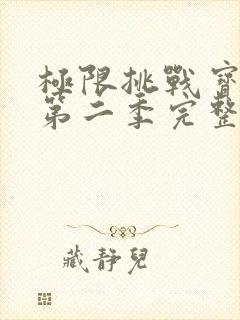 極限挑戰寶
第二季完整
藏靜兒